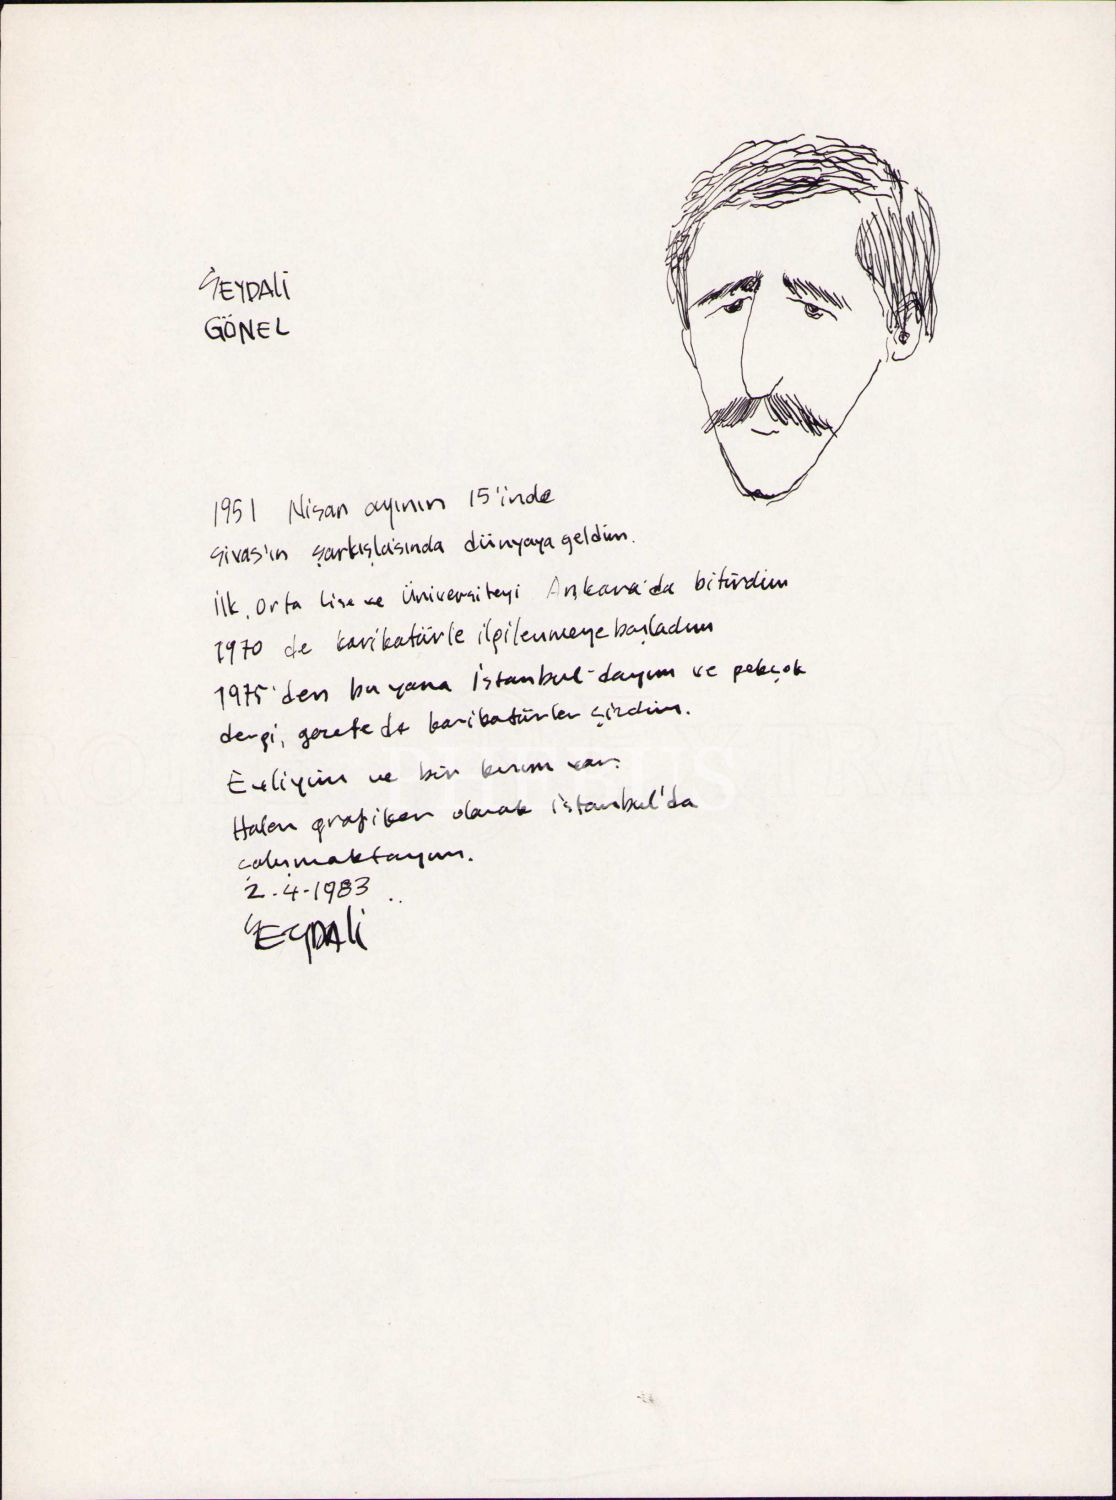 SEYDALİ
GÖNEL
1951 Nisan ayının 15'inde
Sivas'ın Şarkışlasında dünyaya geldim.
İlk, Orta Lise ve Üniversiteyi Ankara'da bitirdim
1970 de karikatürle ilgilenmeye başladım
1975'den bu yana İstanbul-dayım ve pekçok
dergi, gazete de karikatürler çizdim.
Evliyim ve bir kızım var.
Halen grafiker olarak İstanbul'da
çalışmaktayım.
2-4-1983
SEYDALİ